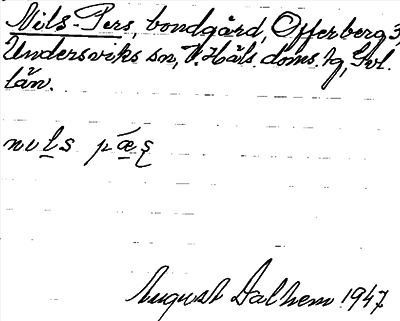 Nils-Pers, bondgård, Offerberg 3,
Undersviks sn, V. Häls. doms. lg, Gvl.
län.
nils pæʂ
August Dalhem 1947